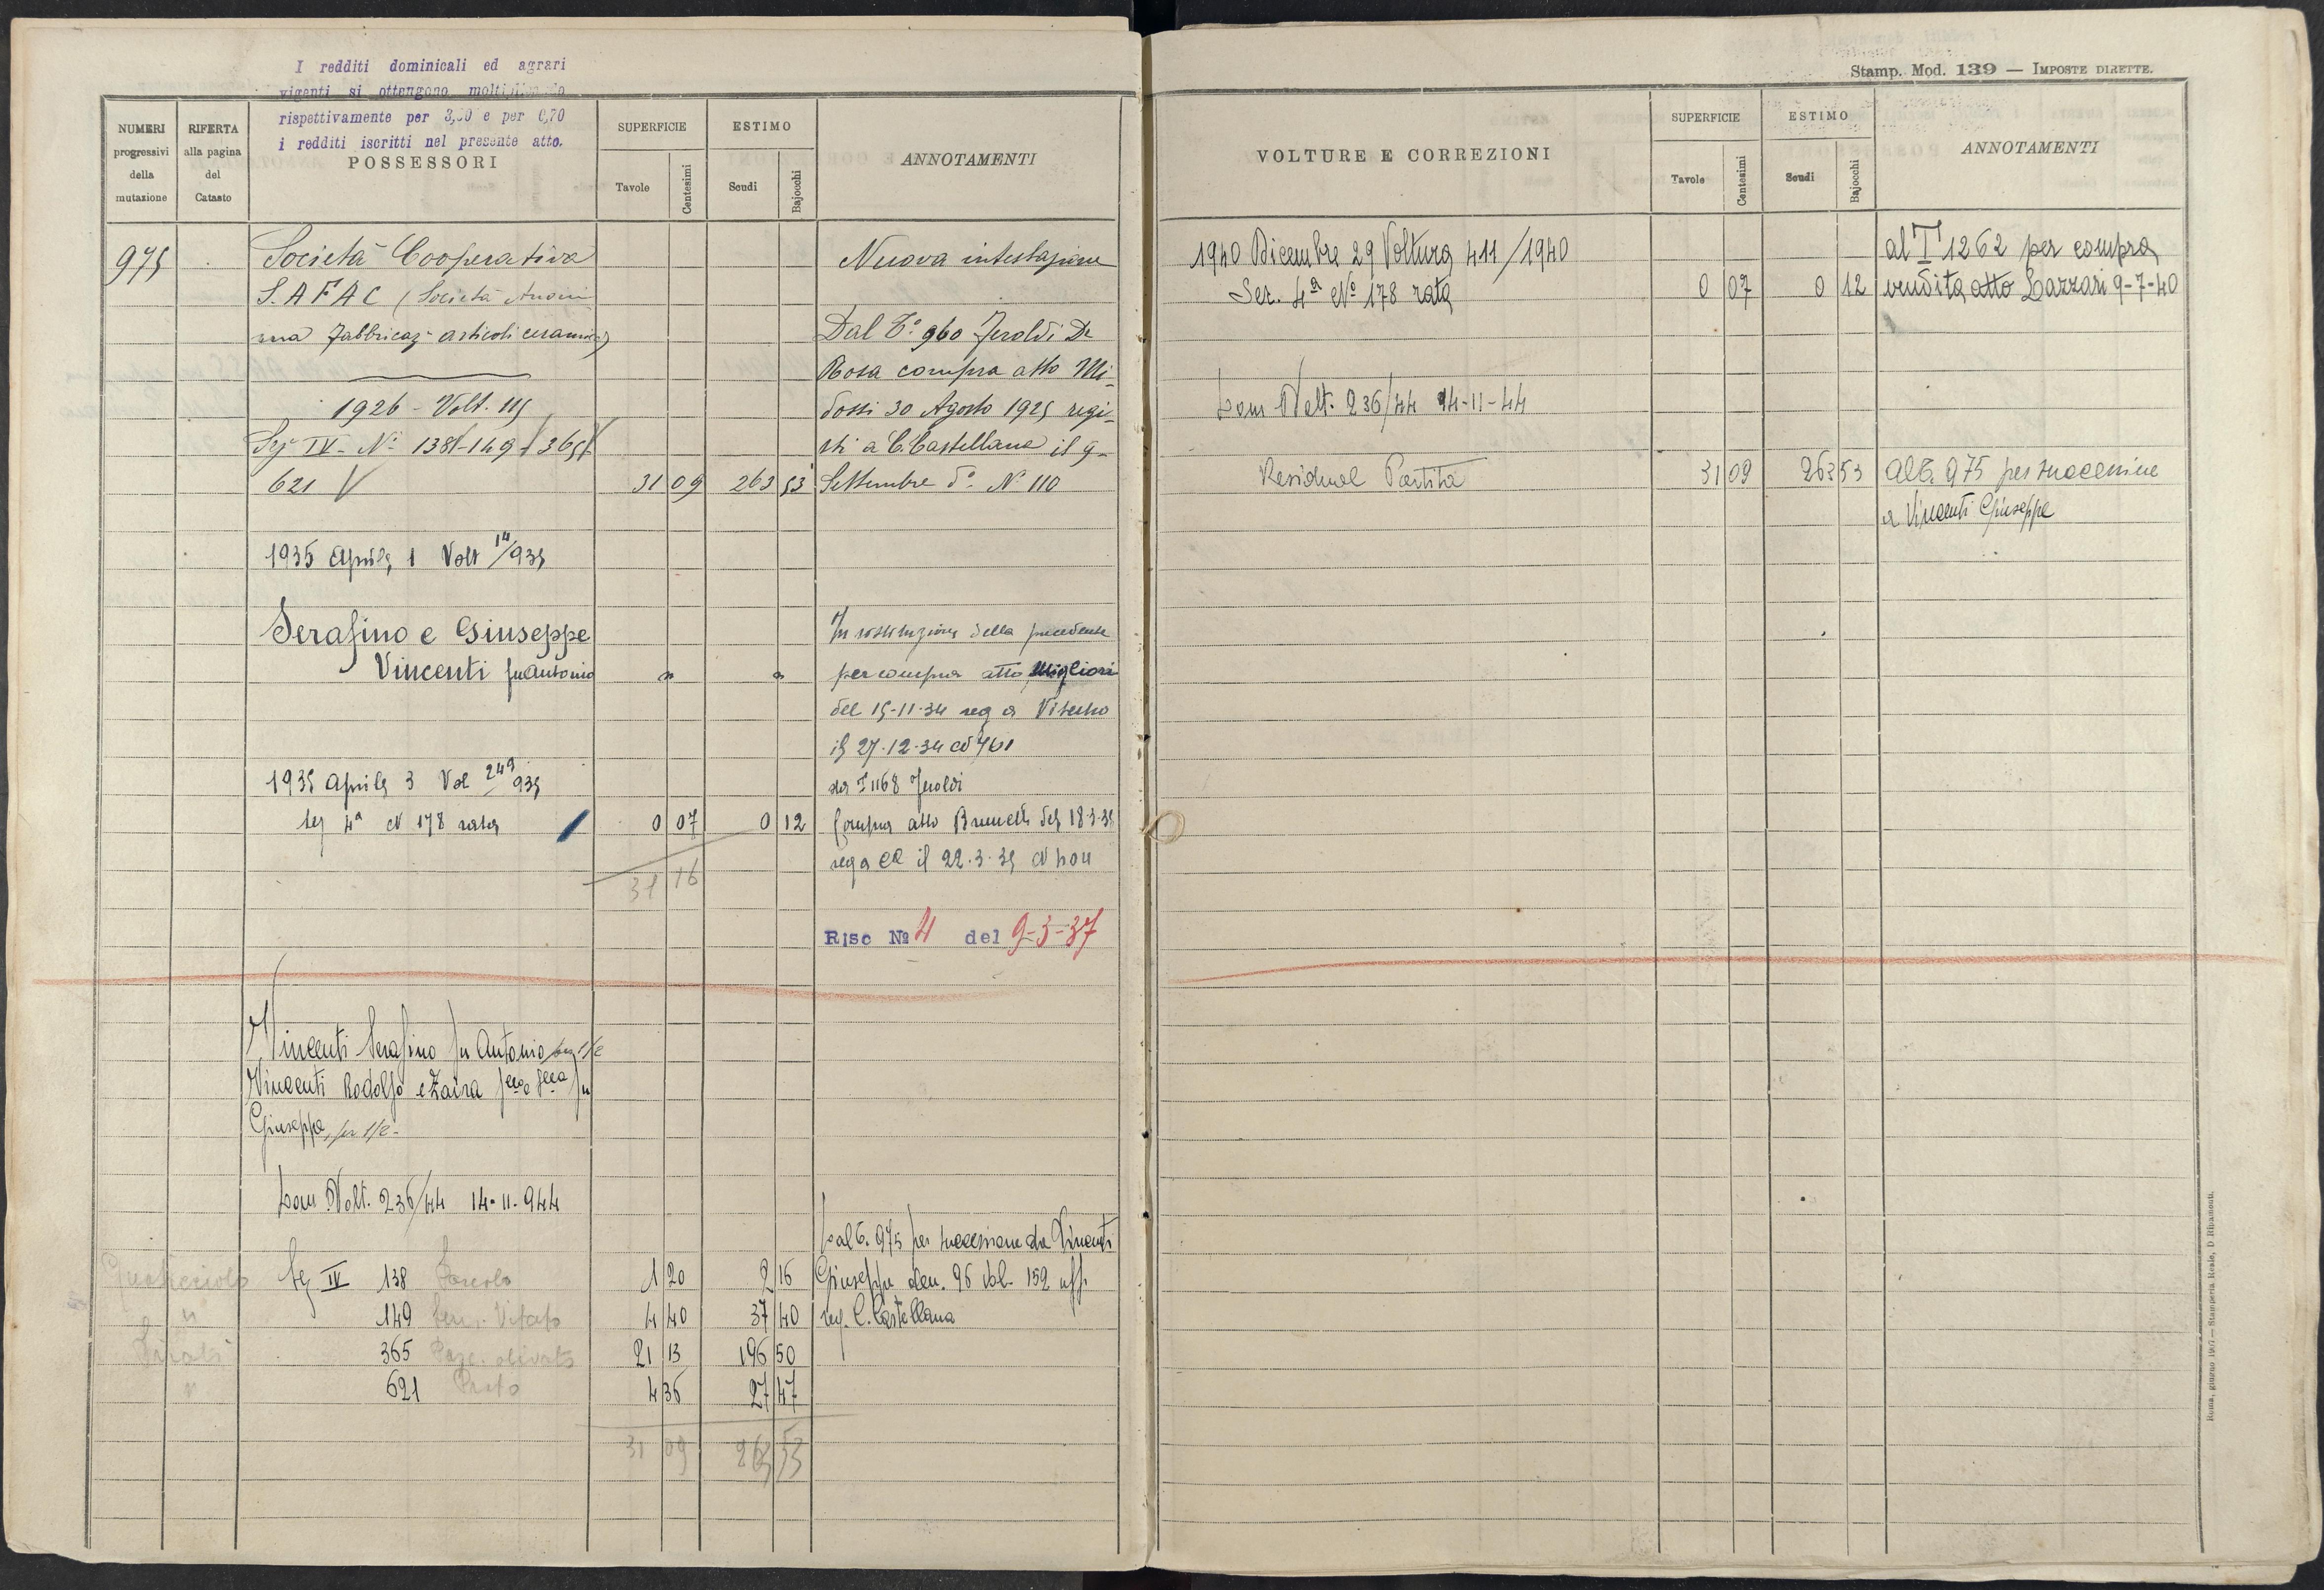 I redditi dominicali ed agrari
vigenti si ottengono moltiplicando
rispettivamente per 3,50 e per 0,70
i redditi iscritti nel presente atto.
NUMERI progressivi della mutazione
RIFERTA alla pagina del Catasto
POSSESSORI
SUPERFICIE
Tavole
Centesimi
ESTIMO
Scudi
Bajocchi
ANNOTAMENTI
975 Società Cooperativa Nuova intestazione
S.A.F.A.C. (Società Anoni-
ma Fabbricaz. articoli ceramica) Dal T.º 960 Feroldi De
Rosa compra atto Mi-
1926 - Volt. 115 dossi 30 Agosto 1925 regi-
Sez IV - Nº 138 - 149 - 365 str. a C. Castellana il 9
621 31 09 263 53 Settembre dº Nº 110
1935 Aprile 1 Volt 14/935
Serafino e Giuseppe In sostituzione della precedente
Vincenti fu Antonio " " per compra atto Migliori
del 15-11-34 reg a Viterbo
il 27-12-34 N 761
1935 Aprile 3 Vol 249/935 da T 1168 Feroldi
Sez 4ª N 178 rata 0 07 0 12 Compra atto Brunelli del 18-3-35
31 16 reg a CC il 22-3-35 N
Risc Nº 4 del 9-3-37
Vincenti Serafino fu Antonio per 1/2
Vincenti Rodolfo e Zaira fllo e slla fu
Giuseppe, per 1/2 -
Dom Volt. 236/44 14-11-944
Dal T. 975 per successione da Vincenti
Sez IV 138 Pascolo 1 20 2 16 Giuseppe den. 96 vol. 152 uff.
" 149 Sem. Vitato 4 40 37 40 reg. C. Castellana
365 Pasc. olivato 21 13 196 50
" 621 Prato 4 36 27 47
31 09 263 53
Stamp. Mod. 139 — IMPOSTE DIRETTE.
VOLTURE E CORREZIONI
SUPERFICIE
Tavole
Centesimi
ESTIMO
Scudi
Bajocchi
ANNOTAMENTI
1940 Dicembre 29 Voltura 411/1940 al T 1262 per compra
Sez. 4ª Nº 178 rata 0 07 0 12 vendita atto Lazzari 9-7-40
Dom Volt. 236/44 14-11-44
Residual Partita 31 09 263 53 Al T. 975 per successione
a Vincenti Giuseppe
Roma, giugno 1907 — Stamperia Reale, D Ripamonti.